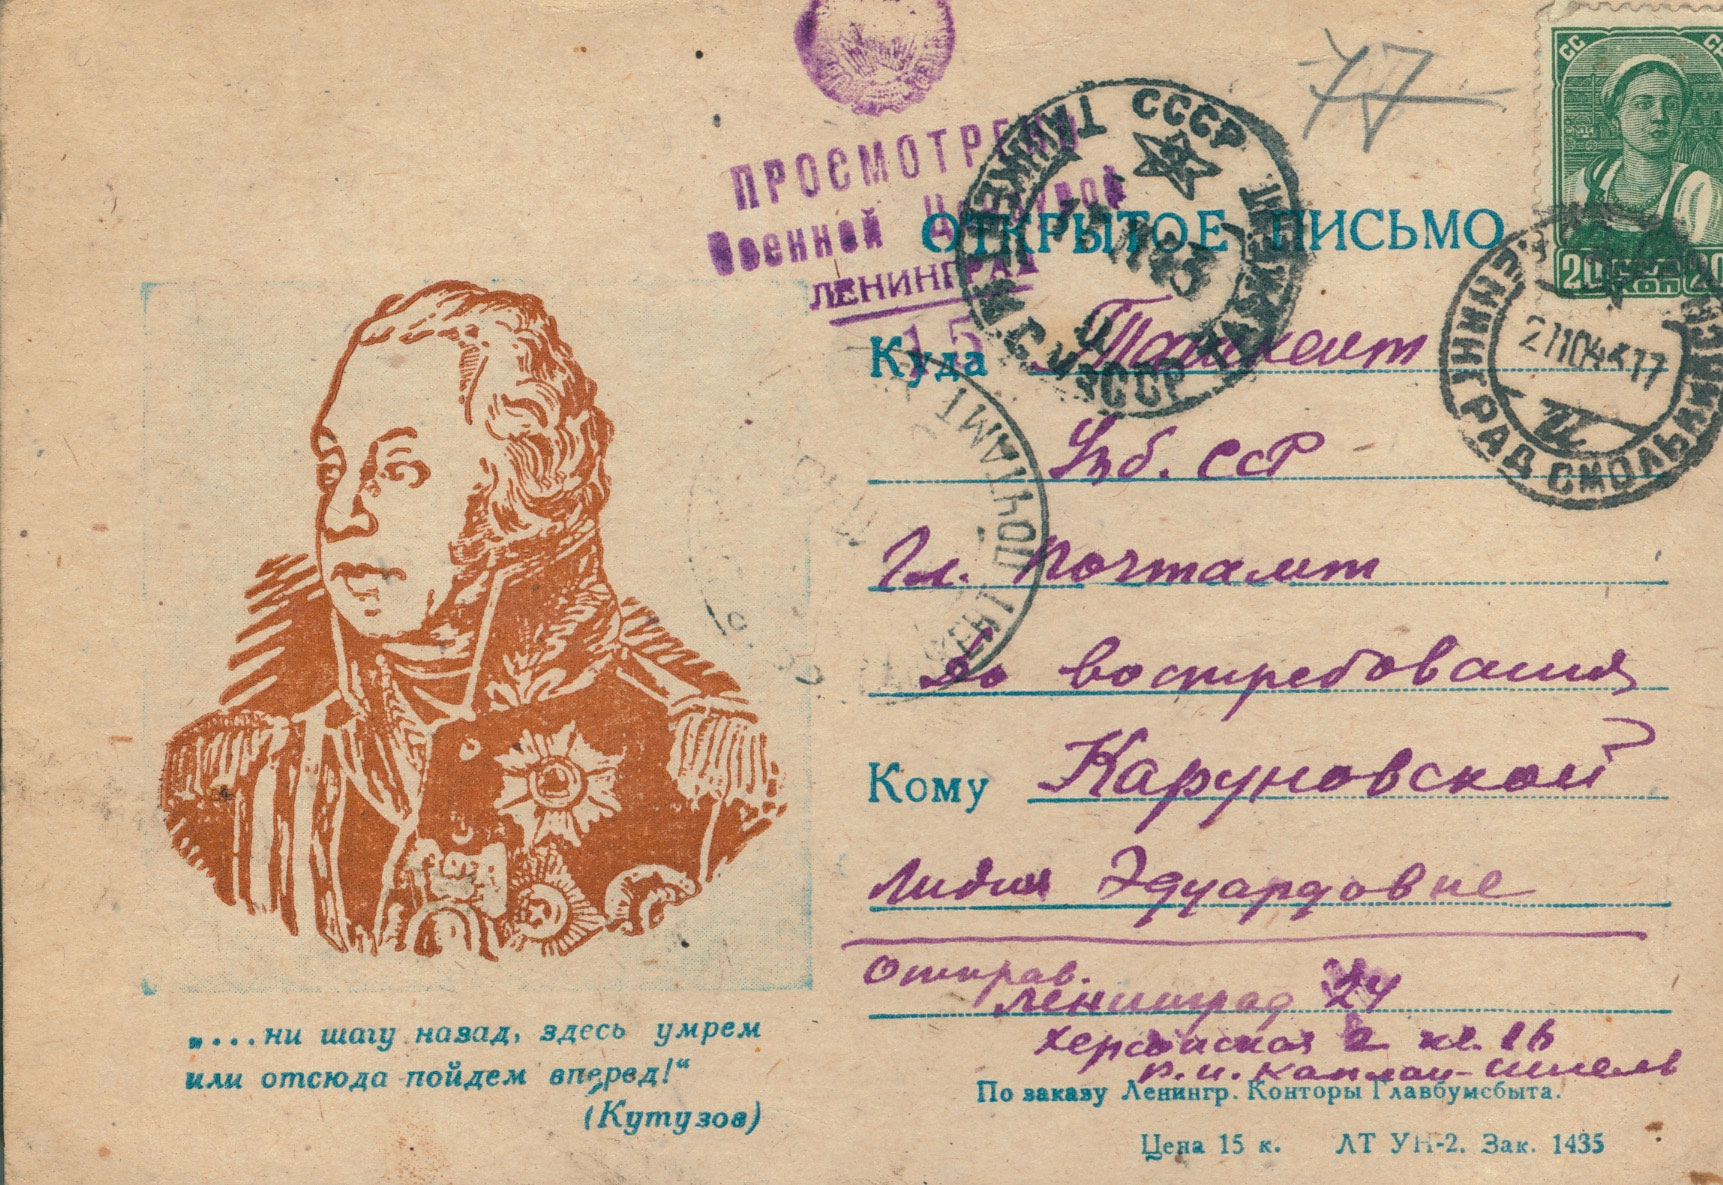 ПРОСМОТРЕНО
Военной Цензурой
ЛЕНИНГРАД
15
ТАШКЕНТ СССР
СС СР
20 КОП 20
ЛЕНИНГРАД СМОЛЬНИНСК
ПОЧТАМТ
ОТКРЫТОЕ ПИСЬМО
Куда Ташкент
Узб. ССР
Гл. Почтамт
До востребования
Кому Каруновской
Лидии Эдуардовне
Отправ.
Ленинград 24
Херсонская 2 кв. 16
Р. И. Каплан-Ингель
„...ни шагу назад, здесь умрем
или отсюда пойдем вперед!“
(Кутузов)
По заказу Ленингр. Конторы Главбумсбыта.
Цена 15 к. ЛТ УН-2. Зак. 1435